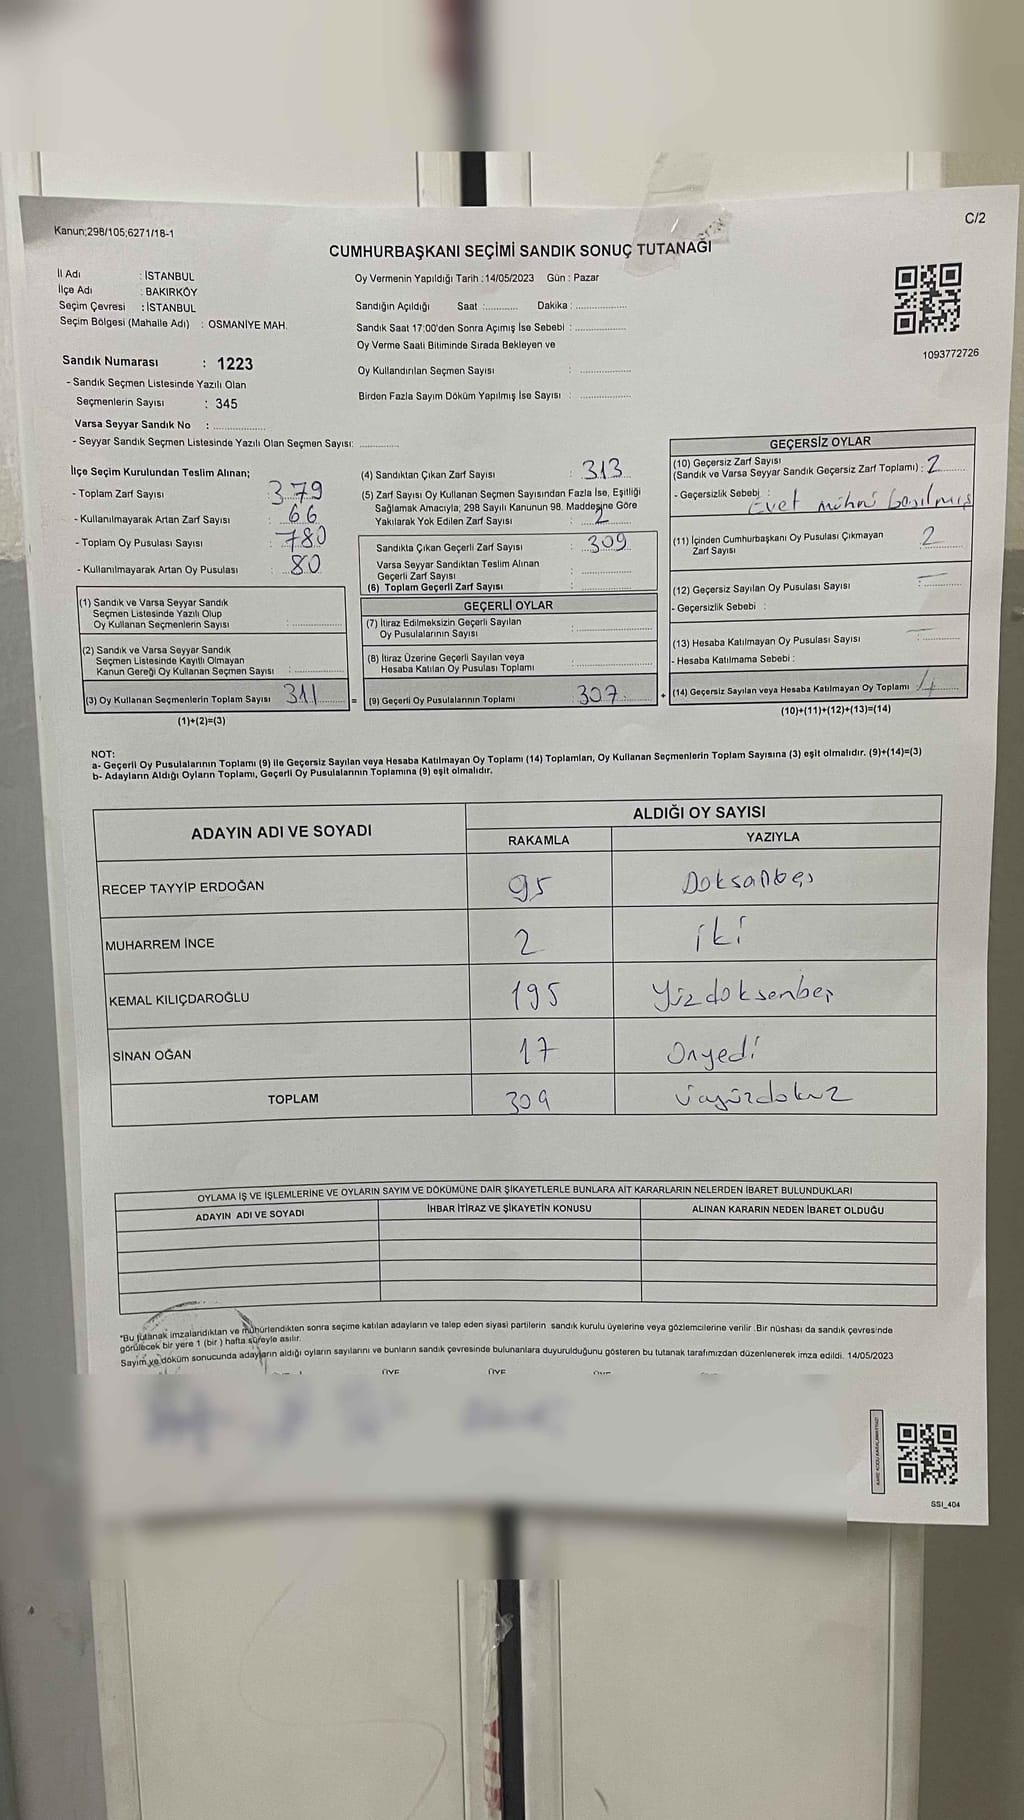 C/2
Kanun;298/105;6271/18-1
CUMHURBAŞKANI SEÇİMİ SANDIK SONUÇ TUTANAĞI
İl Adı : İSTANBUL
İlçe Adı : BAKIRKÖY
Seçim Çevresi : İSTANBUL
Seçim Bölgesi (Mahalle Adı) : OSMANİYE MAH.
Oy Vermenin Yapıldığı Tarih :14/05/2023 Gün : Pazar
Sandığın Açıldığı Saat :............ Dakika :..................
Sandık Saat 17:00'den Sonra Açımış İse Sebebi :..................
Oy Verme Saati Bitiminde Sırada Bekleyen ve
Oy Kullandırılan Seçmen Sayısı : ..................
Birden Fazla Sayım Döküm Yapılmış İse Sayısı : ..................
1093772726
Sandık Numarası : 1223
- Sandık Seçmen Listesinde Yazılı Olan
Seçmenlerin Sayısı : 345
Varsa Seyyar Sandık No : ..................
- Seyyar Sandık Seçmen Listesinde Yazılı Olan Seçmen Sayısı: .............
İlçe Seçim Kurulundan Teslim Alınan;
- Toplam Zarf Sayısı : 379
- Kullanılmayarak Artan Zarf Sayısı : 66
- Toplam Oy Pusulası Sayısı : 780
- Kullanılmayarak Artan Oy Pusulası : 80
(1) Sandık ve Varsa Seyyar Sandık
Seçmen Listesinde Yazılı Olup
Oy Kullanan Seçmenlerin Sayısı : ..................
(2) Sandık ve Varsa Seyyar Sandık
Seçmen Listesinde Kayıtlı Olmayan
Kanun Gereği Oy Kullanan Seçmen Sayısı : ..................
(3) Oy Kullanan Seçmenlerin Toplam Sayısı 311
(1)+(2)=(3)
(4) Sandıktan Çıkan Zarf Sayısı : 313
(5) Zarf Sayısı Oy Kullanan Seçmen Sayısından Fazla İse, Eşitliği
Sağlamak Amacıyla; 298 Sayılı Kanunun 98. Maddesine Göre
Yakılarak Yok Edilen Zarf Sayısı : 2
Sandıkta Çıkan Geçerli Zarf Sayısı : 309
Varsa Seyyar Sandıktan Teslim Alınan
Geçerli Zarf Sayısı : ..................
(6) Toplam Geçerli Zarf Sayısı : ..................
GEÇERLİ OYLAR
(7) İtiraz Edilmeksizin Geçerli Sayılan
Oy Pusulalarının Sayısı : ..................
(8) İtiraz Üzerine Geçerli Sayılan veya
Hesaba Katılan Oy Pusulası Toplamı : ..................
= (9) Geçerli Oy Pusulalarının Toplamı 307
GEÇERSİZ OYLAR
(10) Geçersiz Zarf Sayısı
(Sandık ve Varsa Seyyar Sandık Geçersiz Zarf Toplamı) : 2
- Geçersizlik Sebebi : Evet mührü basılmış
(11) İçinden Cumhurbaşkanı Oy Pusulası Çıkmayan
Zarf Sayısı : 2
(12) Geçersiz Sayılan Oy Pusulası Sayısı : —
- Geçersizlik Sebebi :
(13) Hesaba Katılmayan Oy Pusulası Sayısı : —
- Hesaba Katılmama Sebebi :
+ (14) Geçersiz Sayılan veya Hesaba Katılmayan Oy Toplamı : 4
(10)+(11)+(12)+(13)=(14)
NOT:
a- Geçerli Oy Pusulalarının Toplamı (9) ile Geçersiz Sayılan veya Hesaba Katılmayan Oy Toplamı (14) Toplamları, Oy Kullanan Seçmenlerin Toplam Sayısına (3) eşit olmalıdır. (9)+(14)=(3)
b- Adayların Aldığı Oyların Toplamı, Geçerli Oy Pusulalarının Toplamına (9) eşit olmalıdır.
ADAYIN ADI VE SOYADI ALDIĞI OY SAYISI
RAKAMLA YAZIYLA
RECEP TAYYİP ERDOĞAN 95 Doksanbeş
MUHARREM İNCE 2 iki
KEMAL KILIÇDAROĞLU 195 Yüzdoksenbeş
SİNAN OĞAN 17 Onyedi
TOPLAM 309 üçyüzdokuz
OYLAMA İŞ VE İŞLEMLERİNE VE OYLARIN SAYIM VE DÖKÜMÜNE DAİR ŞİKAYETLERLE BUNLARA AİT KARARLARIN NELERDEN İBARET BULUNDUKLARI
ADAYIN ADI VE SOYADI İHBAR İTİRAZ VE ŞİKAYETİN KONUSU ALINAN KARARIN NEDEN İBARET OLDUĞU
"Bu tutanak imzalandıktan ve mühürlendikten sonra seçime katılan adayların ve talep eden siyasi partilerin sandık kurulu üyelerine veya gözlemcilerine verilir .Bir nüshası da sandık çevresinde
görülecek bir yere 1 (bir ) hafta süreyle asılır.
Sayım ve döküm sonucunda adayların aldığı oyların sayılarını ve bunların sandık çevresinde bulunanlara duyurulduğunu gösteren bu tutanak tarafımızdan düzenlenerek imza edildi. 14/05/2023
ÜYE ÜYE
SSI_404